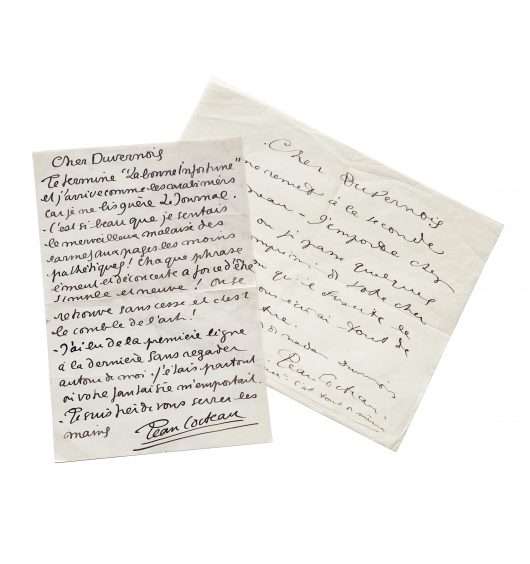 Cher Duvernois
Je termine "La bonne Infortune"
et j'arrive comme les carabiniers
car je ne lis guère Le Journal.
- C'est si beau que je sentais
le merveilleux malaise des
larmes aux pages les moins
pathétiques! Chaque phrase
émeut et déconcerte à force d'être
simple et neuve! On se
retrouve sans cesse et c'est
le comble de l'art!
- J'ai lu de la première ligne
à la dernière sans regarder
autour de moi. J'étais partout
où votre fantaisie m'emportait.
- Je suis fier de vous serrer les
mains
Jean Cocteau
Cher Duvernois
à la seconde
J'emporte chez
où je passe quelques
de votre cher
qu'il
tout de
Jean Cocteau